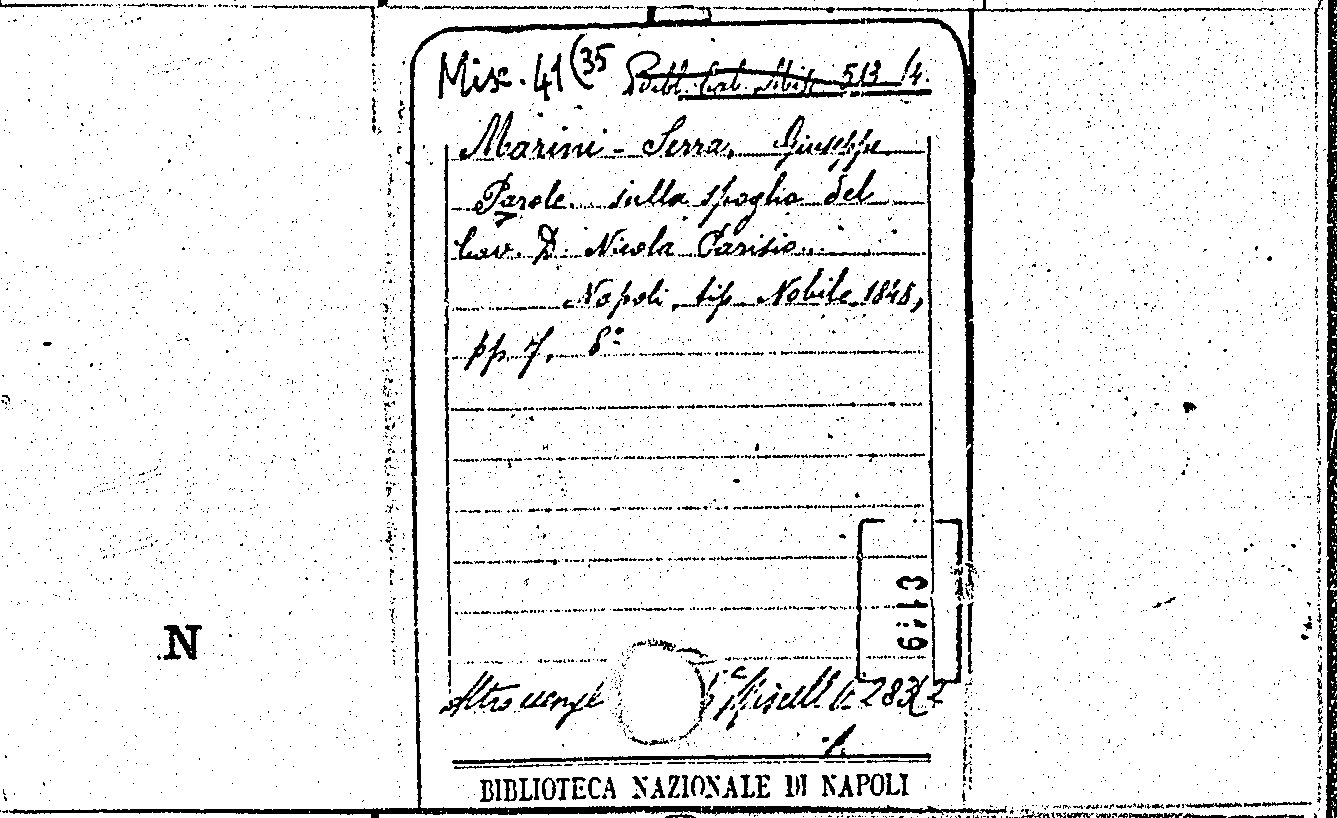 Misc. 41(35 Bibl. Cat. Misc. 513/4.
Marini-Serra, Giuseppe
Parole sulla spoglia del
Cav. D. Nicola Parisio...
Napoli, tip. Nobile, 1848,
pp. 7. 8°
Altro esempl. Miscell. 283(2
BIBLIOTECA NAZIONALE DI NAPOLI
N